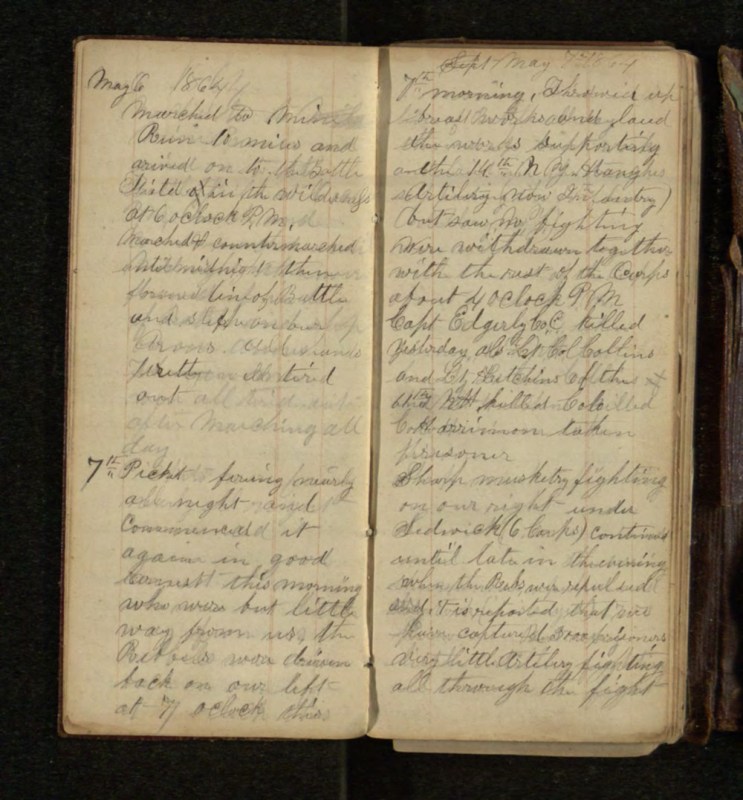 May 6 1864
marched to
Run 10 miles and
arived on to the Battle
field in the wilderness
at 6 oclock P,M,
Mached & countermarched
until midnight then
formed line of Battle
and slept on our
arms
pretty tired
out all tired out
after Marching all
day
7th Picket fireing nearly
all night and
commenceard it
again in good
earnest this morning
who were but little
way from us the
Rebbels was driven
back on our left
at 7 oclock this
Sept May 7th 64
7th morning, Throwed up
breast works and placed
the works supporting
the 14th N Y Heavy
Artilery now Infantry)
but saw no fighting
were withdrawn together
with the rest of the Corps
about 4 oclock P M
Capt Edgerly Co, C, killed
yesterday, als Lt Col Collins
and Lt, Hutchins of the
N H killed
taken
prisoner
Sharp musketry fighting
on our right under
Sedwick (6 Corps) continus
until late in the evening
when the Rebs were repulsed
and it is reported that we
have captured 3000 prisoners
very little Artilery fighting
all through the fight